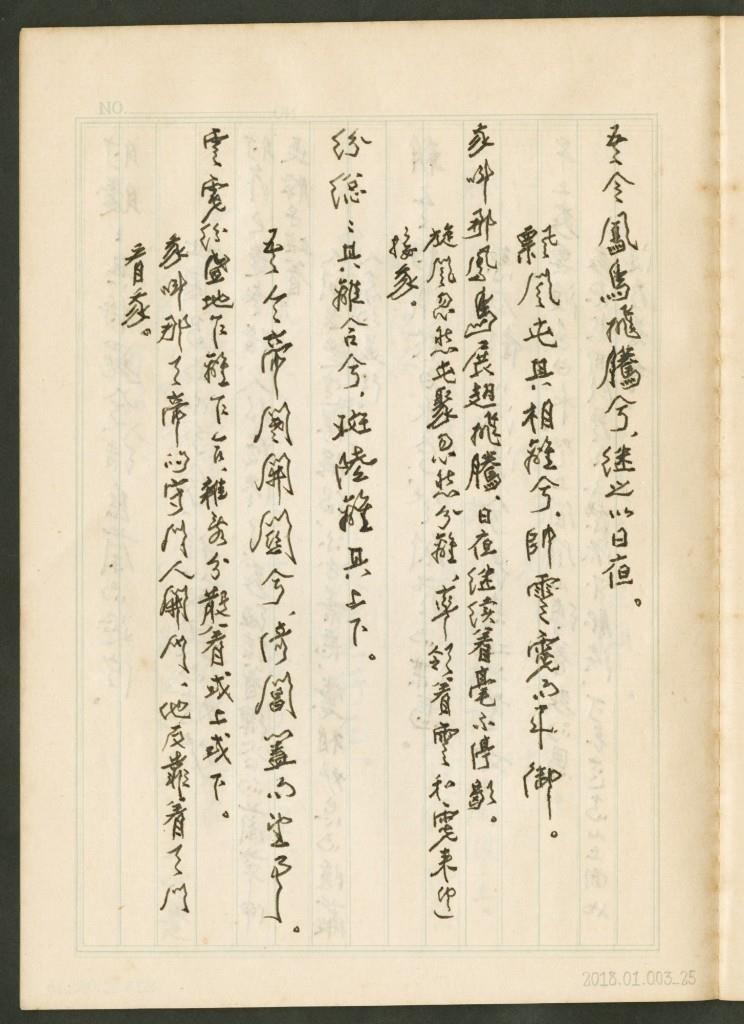 吾令鳳鳥飛騰兮，继之以日夜。
飄風屯其相離兮，帥雲霓而来御。
我叫那鳳鳥展翅飛騰，日夜继续着毫不停歇。
旋風忽然屯聚忽然分離，率领着雲和霓来迎
接我。
紛緫緫其離合兮，斑陸離其上下。
吾令帝閽開関兮，倚閶闔而望予。
雲霓纷盛地乍離乍合，雜亂分散着或上或下。
我叫那天帝的守门人開门，他反靠着天门
看我。
2018.01.003_25